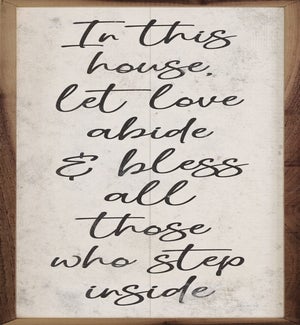 In this
house,
let love
abide
& bless
all
those
who step
inside